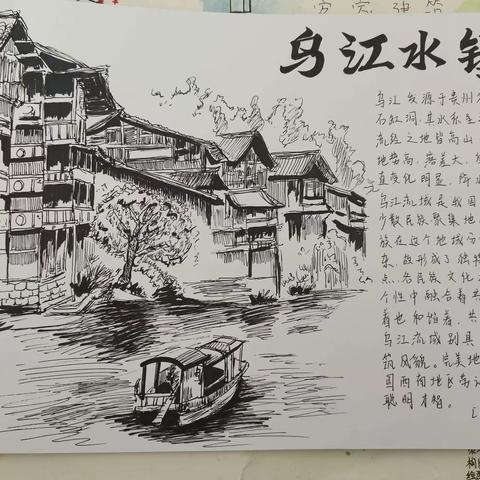 乌江水镇
乌江发源于贵州
石缸洞,其水系呈
流经之地皆高山
地势高,落差大,
直变化明显,降水
乌江流域是我国
少数民族聚集地
族在这个地域分
东,故形成了独特
点,各民族文化
个性中融合着共
着他和谐着,共
乌江流域别具
筑风貌。完美地
国西南地区
聪明才智。